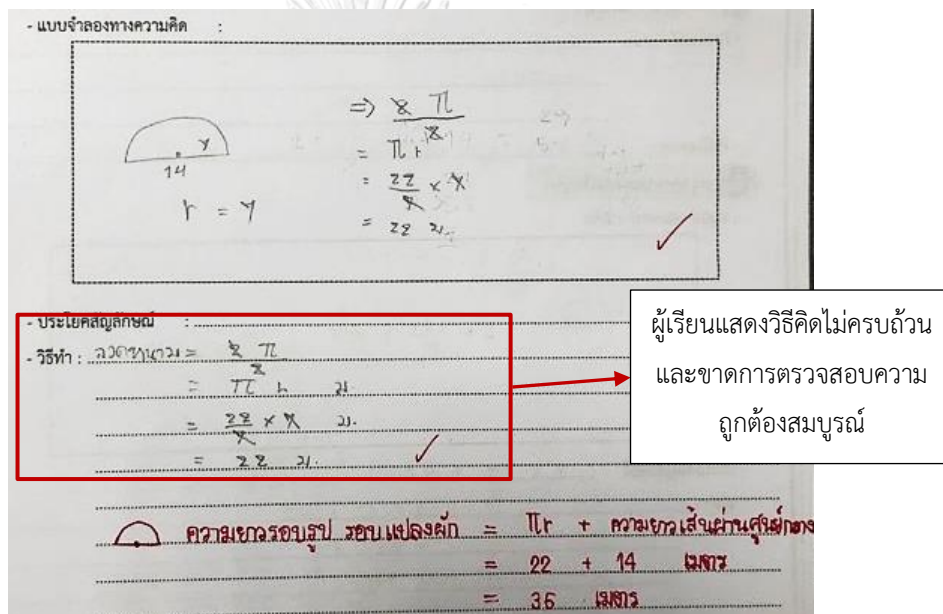 - แบบจำลองทางความคิด :
14
r = 7
=> 2 π
2
= π r
= 22 × 7
7
= 22 ม.
- ประโยคสัญลักษณ์ :
- วิธีทำ : ลวดหนาม = 2 π
2
= π r ม.
= 22 × 7 ม.
7
= 22 ม.
ผู้เรียนแสดงวิธีคิดไม่ครบถ้วน
และขาดการตรวจสอบความ
ถูกต้องสมบูรณ์
ความยาวรอบรูป รอบแปลงผัก = πr + ความยาวเส้นผ่านศูนย์กลาง
= 22 + 14 เมตร
= 36 เมตร